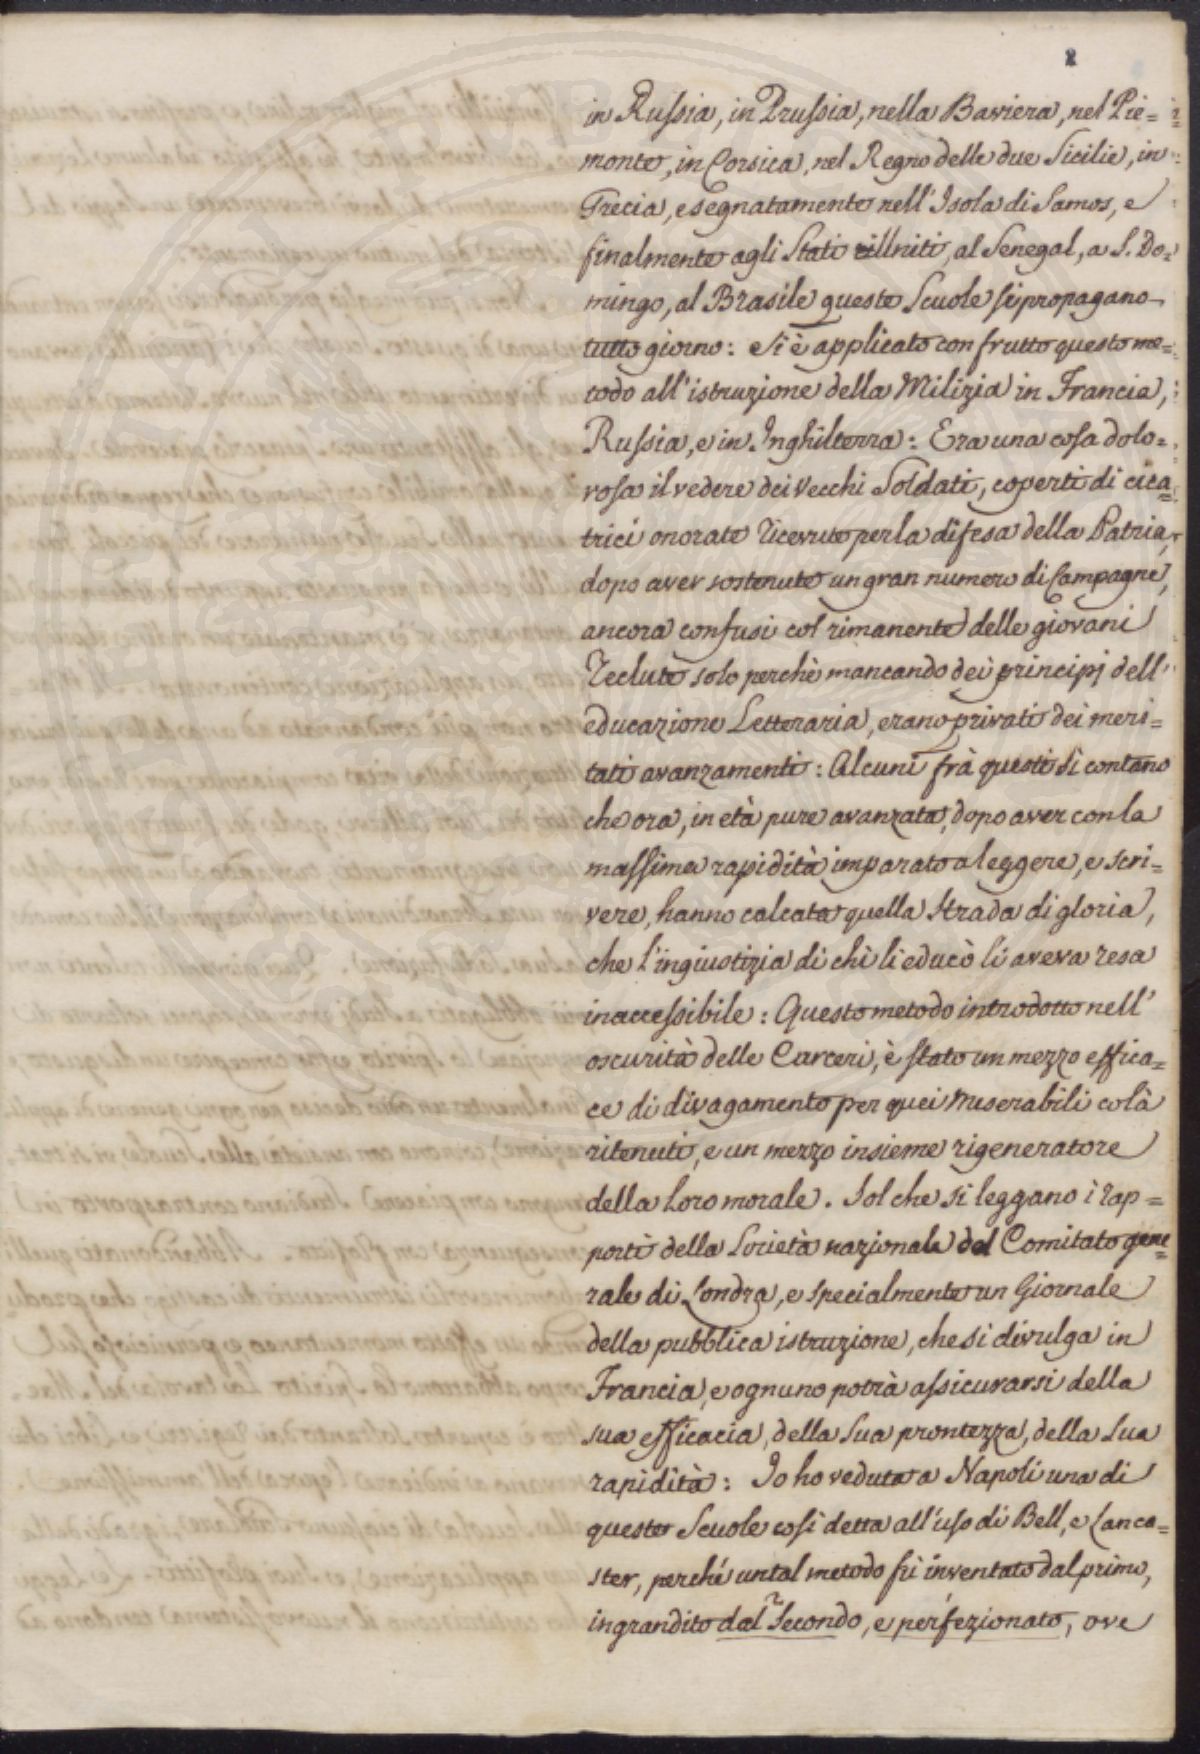 2
in Russia, in Prussia, nella Baviera, nel Pie=
monte, in Corsica, nel Regno delle due Sicilie, in
Grecia, e segnatamente nell'Isola di Samos, e
finalmente agli Stati Uniti, al Senegal, a S. Do=
mingo, al Brasile queste Scuole si propagano
tutto giorno: Si è applicato con frutto questo me=
todo all'istruzione della Milizia in Francia,
Russia, e in Inghilterra: Era una cosa dolo=
rosa il vedere dei vecchi Soldati, coperti di cica=
trici onorate ricevute per la difesa della Patria,
dopo aver sostenute un gran numero di Campagne,
ancora confusi col rimanente delle giovani
reclute solo perchè mancando dei principj dell'
educazione Letteraria, erano privati dei meri=
tati avanzamenti: Alcuni frà questi si contano
che ora, in età pure avanzata, dopo aver con la
massima rapidità imparato a leggere, e scri=
vere, hanno calcata quella Strada di gloria,
che l'ingiustizia di chi li educò li aveva resa
inaccessibile: Questo metodo introdotto nell'
oscurità delle Carceri, è stato un mezzo effica=
ce di divagamento per quei miserabili colà
ritenuti, e un mezzo insieme rigeneratore
della loro morale. Sol che si leggano i rap=
porti della Società nazionale del Comitato gene=
rale di Londra, e specialmente un Giornale
della pubblica istruzione, che si divulga in
Francia, e ognuno potrà assicurarsi della
sua efficacia, della sua prontezza, della sua
rapidità: Io ho veduta a Napoli una di
queste Scuole così detta all'uso di Bell, e Lanca=
ster, perchè un tal metodo fù inventato dal primo,
ingrandito dal Secondo, e perfezionato, ove